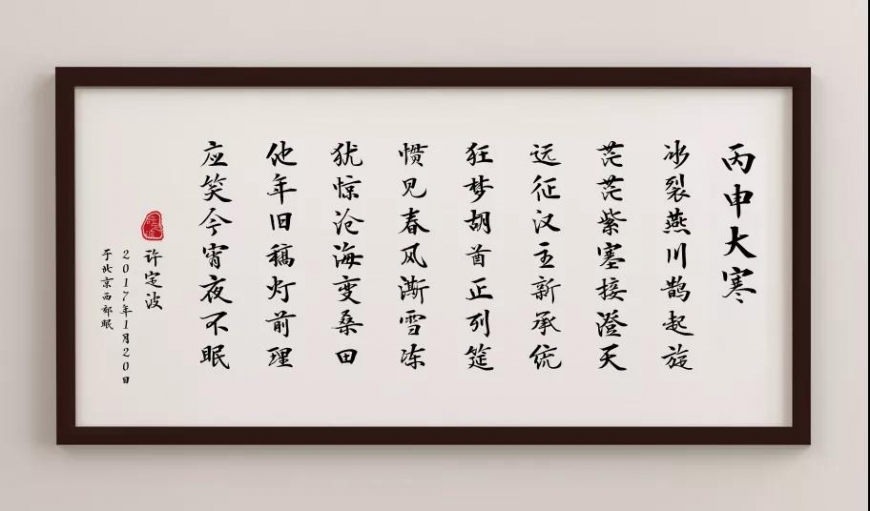 丙申大寒
冰裂燕川鹊起旋
茫茫紫塞接澄天
远征汉主新承统
狂梦胡酋正列筵
惯见春风澌雪冻
犹惊沧海变桑田
他年旧稿灯前理
应笑今宵夜不眠
许定波
2017年1月20日
于北京西郊眠